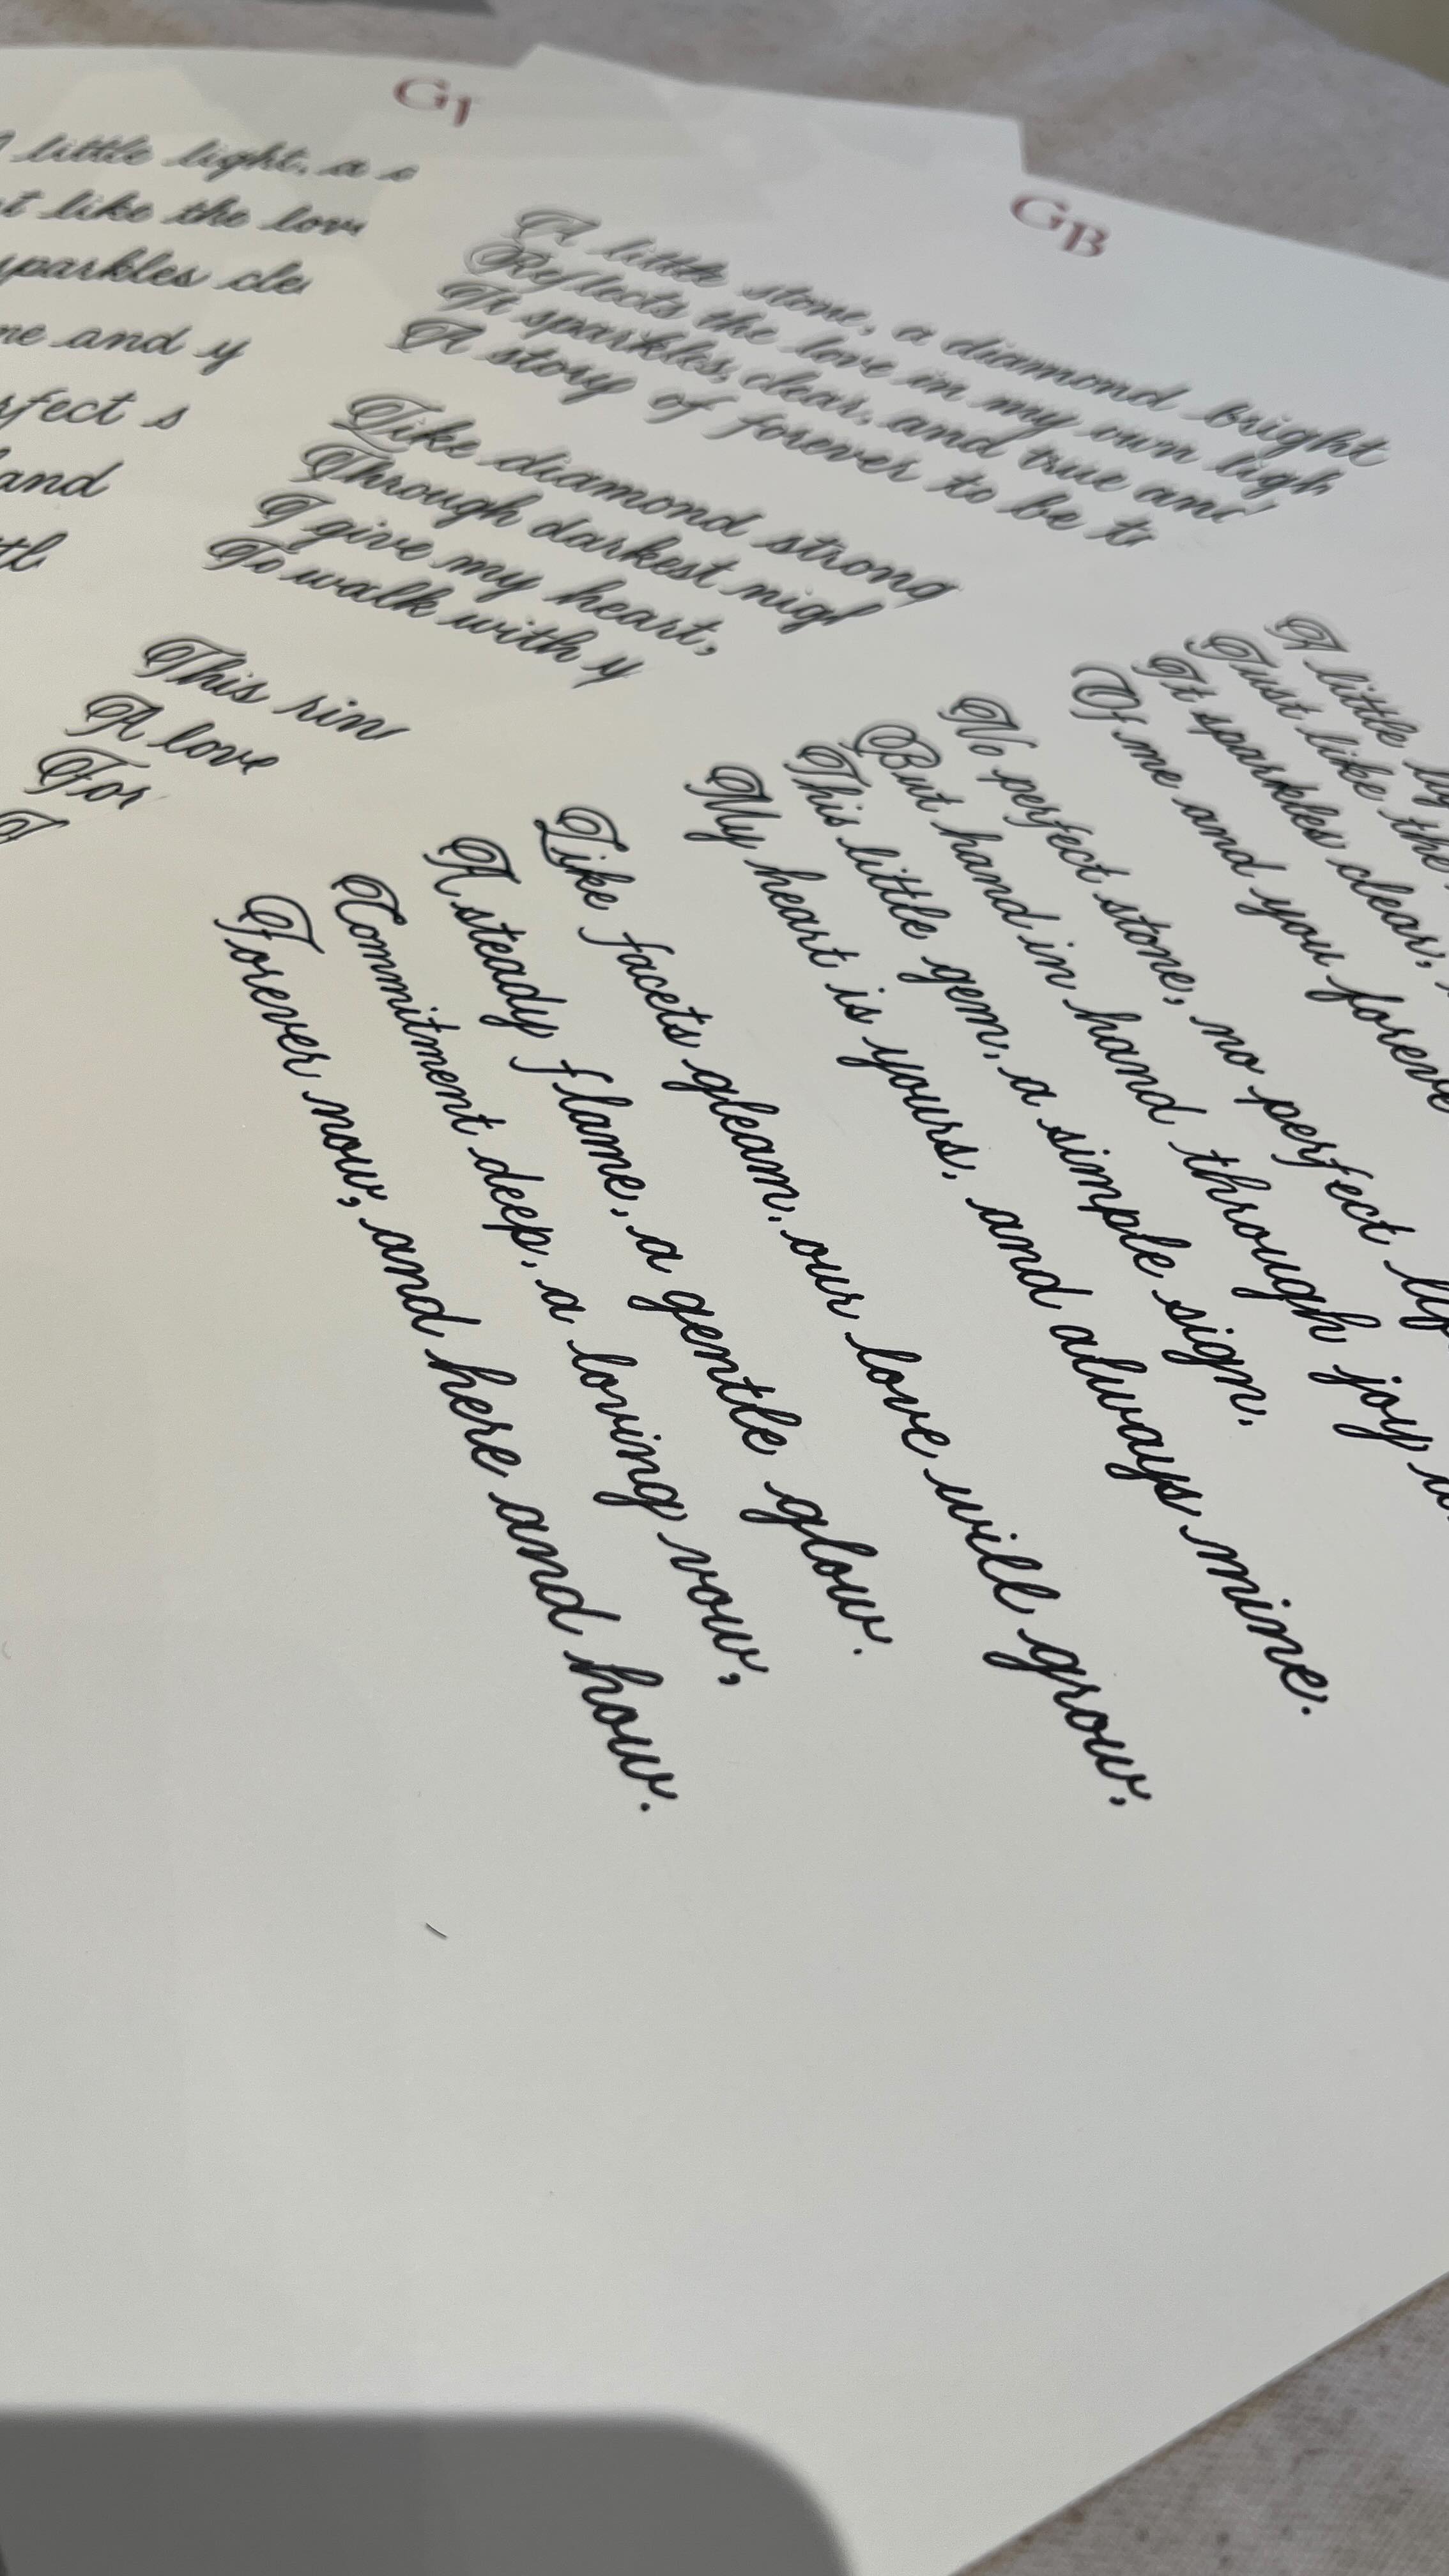 GI
little light, a
like the lov
sparkles cle
me and y
rfect s
and
GB
A little stone, a diamond bright
Reflects the love in my own ligh
It sparkles, clear, and true and
A story of forever to be t
Like diamond strong
Through darkest nigh
I give my heart,
To walk with y
This rin
A love
For
A little lig
Just like the
It sparkles clear,
Of me and you foreve
No perfect stone, no perfect lif
But hand in hand through joy a
This little gem, a simple sign,
My heart is yours, and always mine.
Like facets gleam, our love will grow,
A steady flame, a gentle glow.
Commitment deep, a loving vow,
Forever now, and here and how.